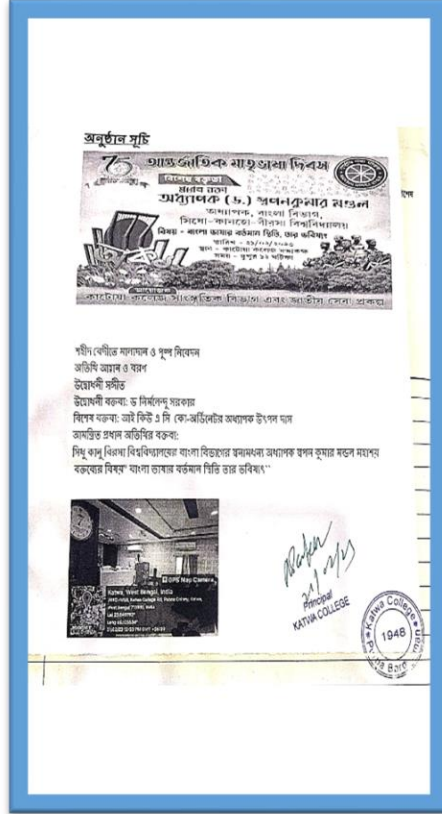 অনুষ্ঠান সূচি
আন্তর্জাতিক মাতৃভাষা দিবস
বিশেষ বক্তৃতা
অধ্যাপক (ড.) স্বপনকুমার মণ্ডল
অধ্যাপক, বাংলা বিভাগ,
সিধো-কানহো-বীরসা বিশ্ববিদ্যালয়
বিষয় - বাংলা ভাষার বর্তমান স্থিতি, তার ভবিষ্যৎ
সময় - দুপুর ১২ ঘটিকা
কাটোয়া কলেজ সাংস্কৃতিক বিভাগ এবং জাতীয় সেবা প্রকল্প
শহীদ বেদীতে মাল্যদান ও পুষ্প নিবেদন
অতিথি আহ্বান ও বরণ
উদ্বোধনী সঙ্গীত
উদ্বোধনী বক্তব্য: ড নির্মলেন্দু সরকার
বিশেষ বক্তব্য: আই কিউ এ সি কো-অর্ডিনেটর অধ্যাপক উৎপল দাস
আমন্ত্রিত প্রধান অতিথির বক্তব্য:
সিধু কানু বিরসা বিশ্ববিদ্যালয়ের বাংলা বিভাগের স্বনামধন্য অধ্যাপক স্বপন কুমার মন্ডল মহাশয়
বক্তব্যের বিষয়" বাংলা ভাষার বর্তমান স্থিতি তার ভবিষ্যৎ"
GPS Map Camera
Katwa, West Bengal, India
Principal
KATWA COLLEGE
Katwa College
1948